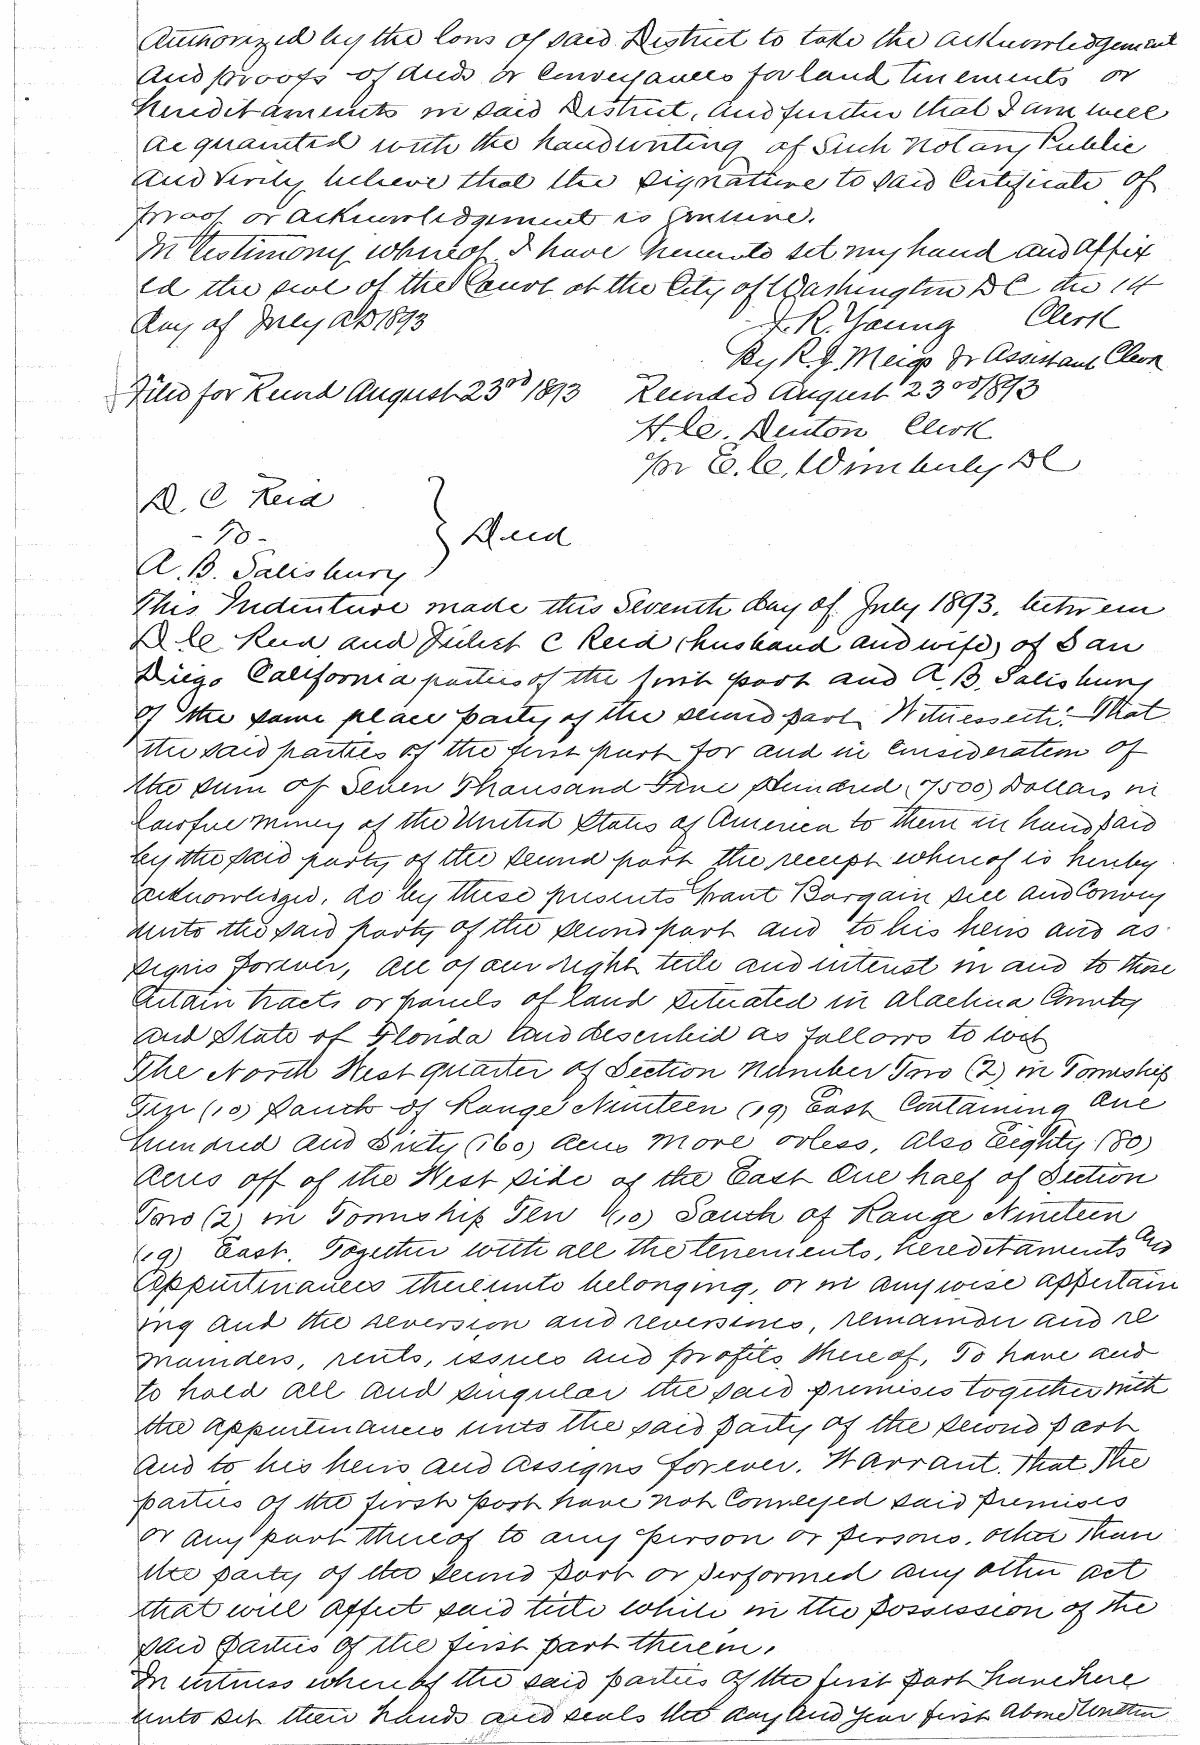 Authorized by the laws of said District to take the acknowledgement
and proofs of deeds or conveyances for land tenements or
hereditaments in said District, and further that I am well
acquainted with the handwriting of such Notary Public
and verily believe that the signature to said Certificate of
proof or acknowledgement is genuine.
In testimony whereof I have hereunto set my hand and affix
ed the seal of the Court at the City of Washington DC the 14
day of July AD 1893
J. R. Young Clerk
By R. J. Meigs Jr Assistant Clerk
Filed for Record August 23rd 1893 Recorded August 23rd 1893
H. C. Denton Clerk
pr E. C. Wimberly DC
D. C Reid
- To -
A. B. Salisbury
} Deed
This Indenture made this Seventh day of July 1893. between
D C Reid and C Reid (husband and wife) of San
Diego California parties of the first part and A. B. Salisbury
of the same place party of the second part Witnesseth: That
the said parties of the first part for and in consideration of
the sum of Seven Thousand Five Hundred (7500) Dollars in
lawful money of the United States of America to them in hand paid
by the said party of the second part the receipt whereof is hereby
acknowledged, do by these presents Grant Bargain sell and Convey
unto the said party of the second part and to his heirs and as
signs forever, all of our right title and interest in and to those
certain tracts or parcels of land situated in Alachua County
and State of Florida and described as follows to wit
The North West quarter of Section number Two (2) in Township
Ten (10) South of Range Nineteen (19) East Containing One
hundred and Sixty (160) acres more or less, also Eighty (80)
acres off of the West side of the East One half of Section
Two (2) in Township Ten (10) South of Range Nineteen
(19) East. Together with all the tenements, hereditaments and
appurtenances thereunto belonging, or in anywise appertain
ing and the reversion and reversions, remainder and re
mainders, rents, issues and profits thereof, To have and
to hold all and singular the said premises together with
the appurtenances unto the said party of the second part
and to his heirs and assigns forever. Warrant. That the
parties of the first part have not Conveyed said premises
or any part thereof to any person or persons, other than
the party of the second part or performed any other act
that will affect said title while in the possession of the
said parties of the first part therein.
In witness whereof the said parties of the first part have here
unto set their hands and seals the day and year first above written